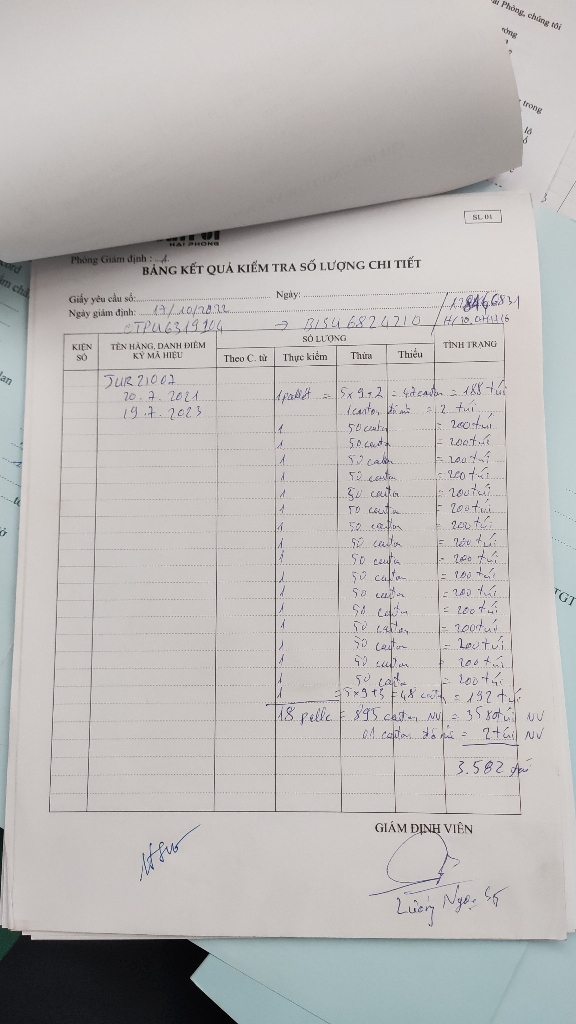 HAI PHONG
SL 01
Phòng Giám định : 1
BẢNG KẾT QUẢ KIỂM TRA SỐ LƯỢNG CHI TIẾT
Giấy yêu cầu số: Ngày:
Ngày giám định: 17/10/2022
→ BISU6824210
KIỆN SỐ
TÊN HÀNG, DANH ĐIỂM KÝ MÃ HIỆU
SỐ LƯỢNG
Theo C. từ Thực kiểm Thừa Thiếu
TÌNH TRẠNG
JUR21002
20.7.2021 1 pallet = 5x9+2 = 47 carton = 188 túi
19.7.2023 1 carton = 2 túi
1 50 carton = 200 túi
1 50 carton = 200 túi
1 50 carton = 200 túi
1 50 carton = 200 túi
1 50 carton = 200 túi
1 50 carton = 200 túi
1 50 carton = 200 túi
1 50 carton = 200 túi
1 50 carton = 200 túi
1 50 carton = 200 túi
1 50 carton = 200 túi
1 50 carton = 200 túi
1 50 carton = 200 túi
1 50 carton = 200 túi
1 50 carton = 200 túi
1 50 carton = 200 túi
1 = 5x9+3 = 48 carton = 192 túi
18 = 895 carton NV = 3580 túi NV
01 carton = 2 túi NV
3.582 túi
GIÁM ĐỊNH VIÊN
Lương Ngọc